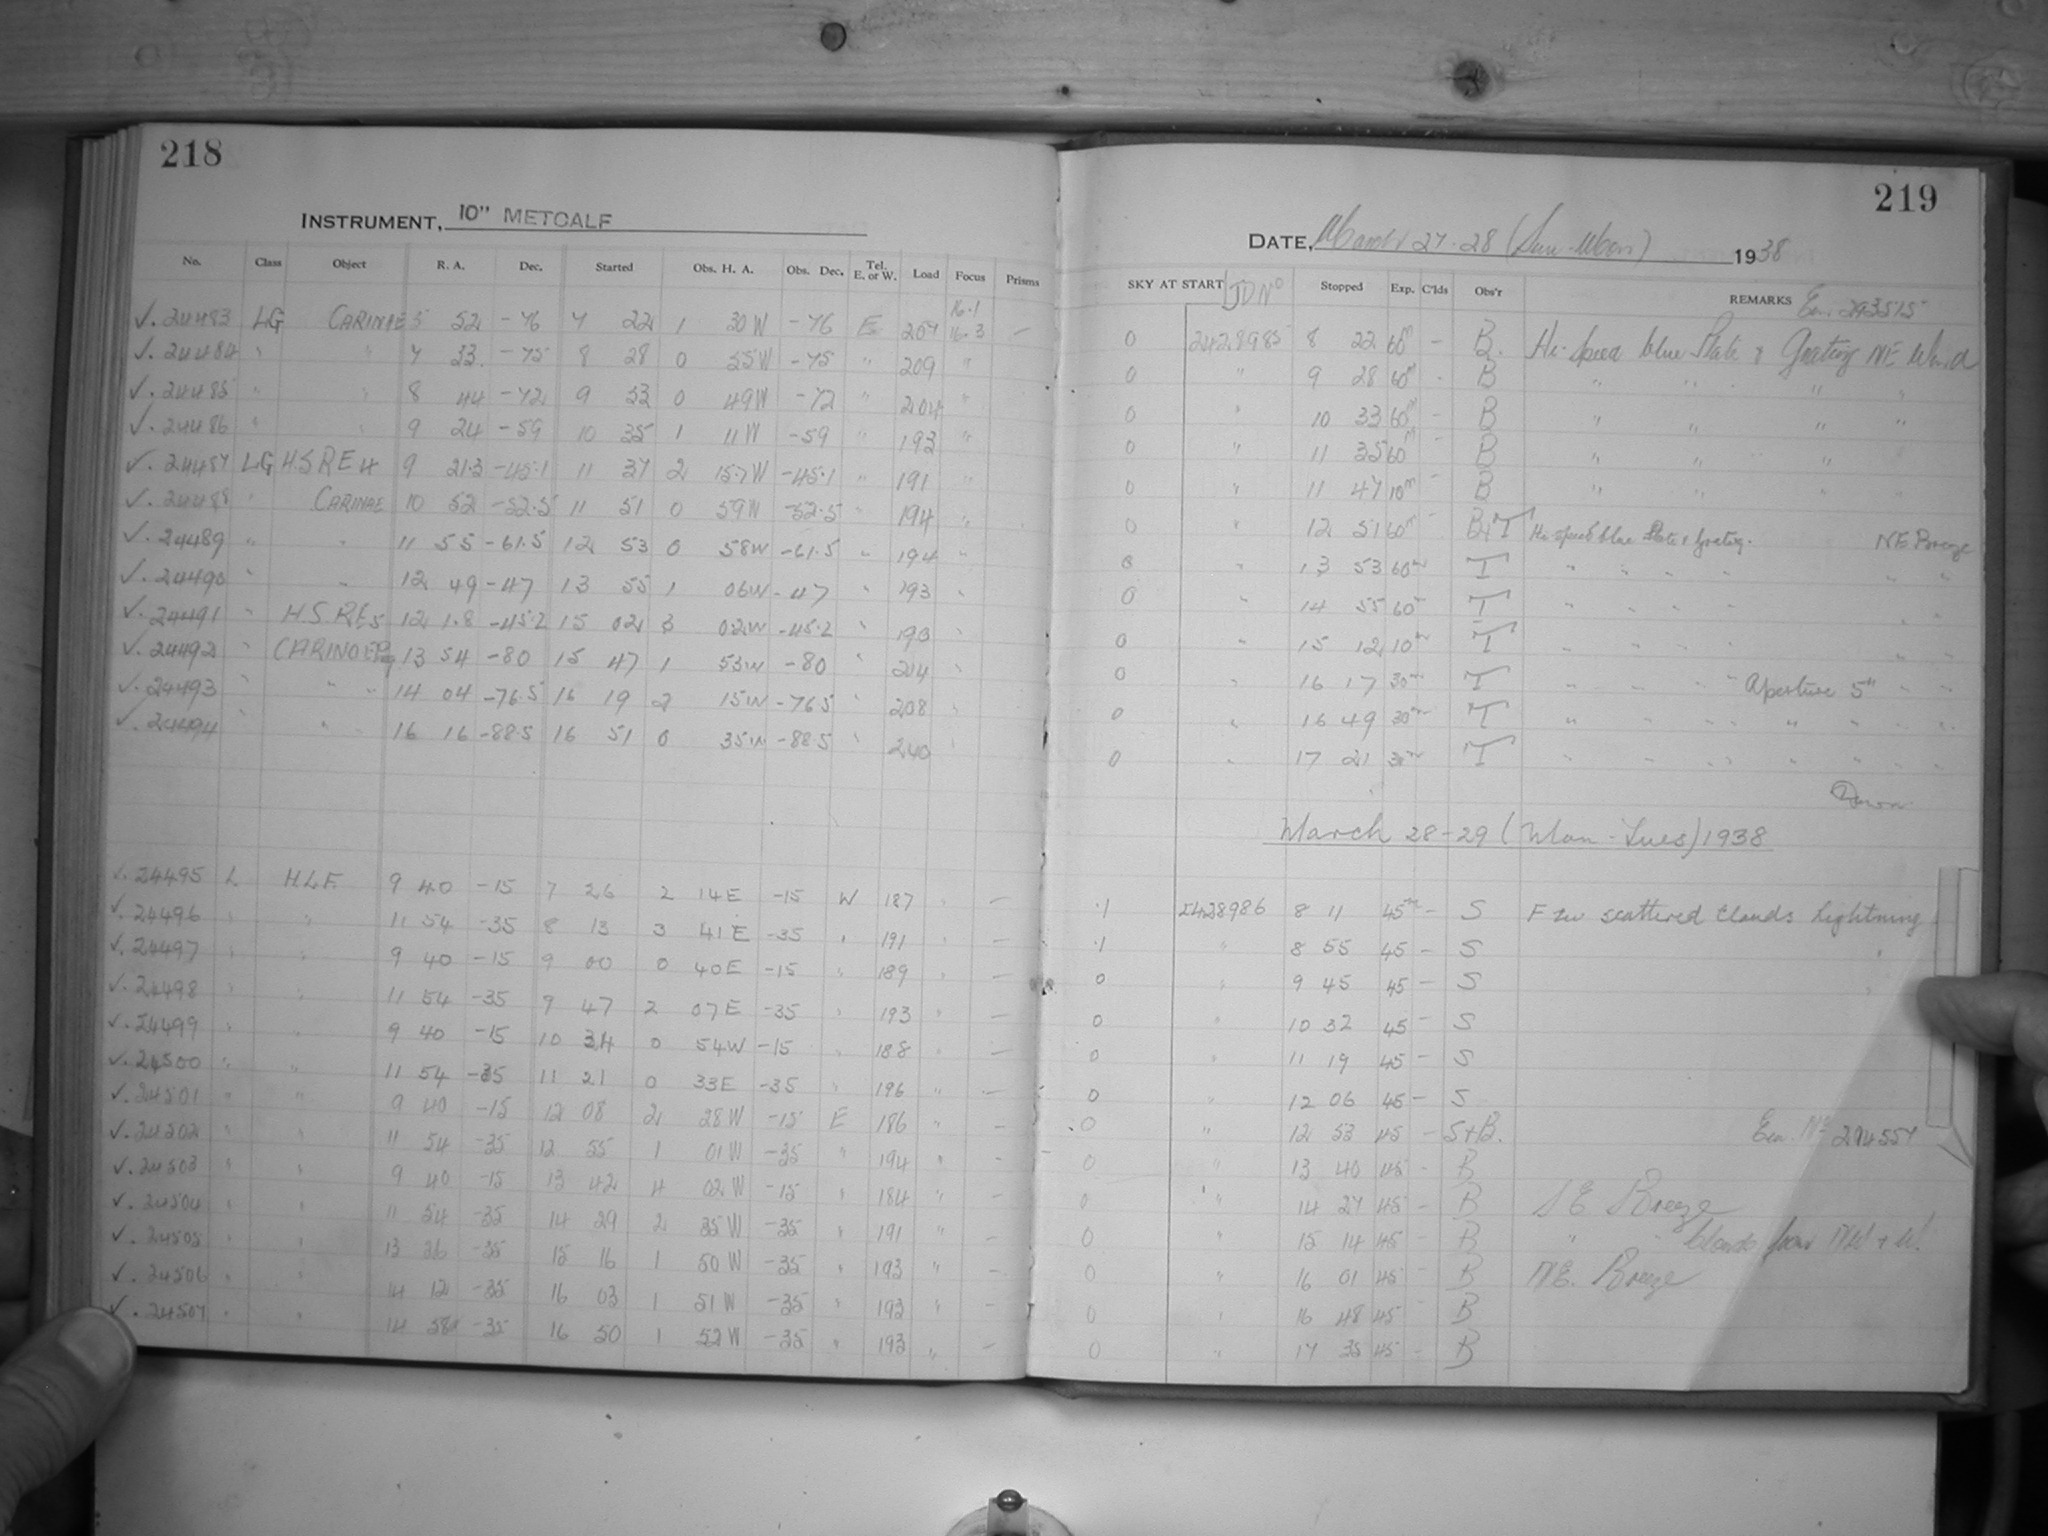 218
INSTRUMENT, 10" METCALF
No. Class Object R. A. Dec. Started Obs. H. A. Obs. Dec. Tel. E. or W. Load Focus Prisms
✓. 24483 LG CARINAE 5 52 -76 7 22 1 30 W -76 E 207 16.1 16.3 —
✓. 24484 " " 7 33 -75 8 28 0 55 W -75 " 209 "
✓. 24485 " " 8 44 -72 9 33 0 49 W -72 " 204 "
✓. 24486 " " 9 24 -59 10 35 1 11 W -59 " 193 "
✓. 24487 LG H.S.RE4 9 21.3 -45.1 11 37 2 15.7 W -45.1 " 191 "
✓. 24488 " CARINAE 10 52 -52.5 11 51 0 59 W -52.5 " 194 "
✓. 24489 " " 11 55 -61.5 12 53 0 58 W -61.5 " 194 "
✓. 24490 " " 12 49 -47 13 55 1 06 W -47 " 193 "
✓. 24491 " H.S.RE5 12 1.8 -45.2 15 02 3 02 W -45.2 " 190 "
✓. 24492 " 13 54 -80 15 47 1 53 W -80 " 214 "
✓. 24493 " " " 14 04 -76.5 16 19 2 15 W -76.5 " 208 "
✓. 24494 " " " 16 16 -88.5 16 51 0 35 W -88.5 " 240 "
✓. 24495 L H.L.F. 9 40 -15 7 26 2 14 E -15 W 187 " —
✓. 24496 " " 11 54 -35 8 13 3 41 E -35 " 191 " —
✓. 24497 " " 9 40 -15 9 00 0 40 E -15 " 189 " —
✓. 24498 " " 11 54 -35 9 47 2 07 E -35 " 193 " —
✓. 24499 " " 9 40 -15 10 34 0 54 W -15 " 188 " —
✓. 24500 " " 11 54 -35 11 21 0 33 E -35 " 196 " —
✓. 24501 " " 9 40 -15 12 08 2 28 W -15 E 186 " —
✓. 24502 " " 11 54 -35 12 55 1 01 W -35 " 194 " —
✓. 24503 " " 9 40 -15 13 42 4 02 W -15 " 184 " —
✓. 24504 " " 11 54 -35 14 29 2 35 W -35 " 191 " —
✓. 24505 " " 13 26 -35 15 16 1 50 W -35 " 193 " —
✓. 24506 " " 14 12 -35 16 03 1 51 W -35 " 193 " —
✓. 24507 " " 14 58 -35 16 50 1 52 W -35 " 193 " —
219
DATE, March 27-28 (Sun-Mon) 1938
SKY AT START JD No Stopped Exp. C'lds Obs'r REMARKS
0 2428985 8 22 60m — B. Hi-Speed blue Plate & Grating NE Wind
0 " 9 28 60m - B " " " "
0 " 10 33 60m - B " " " "
0 " 11 35 60m - B " " "
0 " 11 47 10m - B " " " "
0 " 12 51 60m - B+T Hi-speed blue Plate & Grating. NE Breeze
0 " 13 53 60m T " " " " " "
0 " 14 55 60m T " " " " "
0 " 15 12 10m T " " " " " "
0 " 16 17 30m T " " " " Aperture 5" " "
0 " 16 49 30m T " " " " " " " "
0 " 17 21 30m T " " " " " " " "
Dawn
March 28-29 (Mon-Tues) 1938
.1 2428986 8 11 45m — S Few scattered clouds Lightning
.1 " 8 55 45 — S "
0 " 9 45 45 — S "
0 " 10 32 45 — S
0 " 11 19 45 — S
0 " 12 06 45 — S
0 " 12 53 45 — S+B.
0 " 13 40 45 - B
0 " 14 27 45 - B S E Breeze
0 " 15 14 45 - B " " Clouds from NW + W.
0 " 16 01 45 - B N.E. Breeze
0 " 16 48 45 - B
0 " 17 35 45 - B